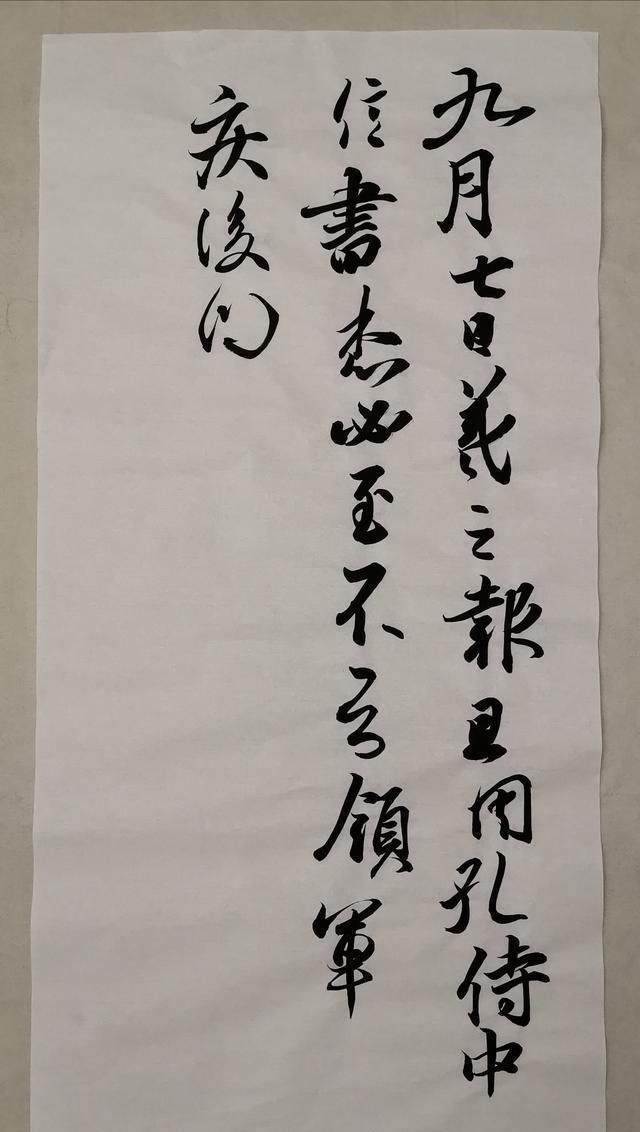 九月七日羲之報且因孔侍中
信書想必至不知領軍
疾後問